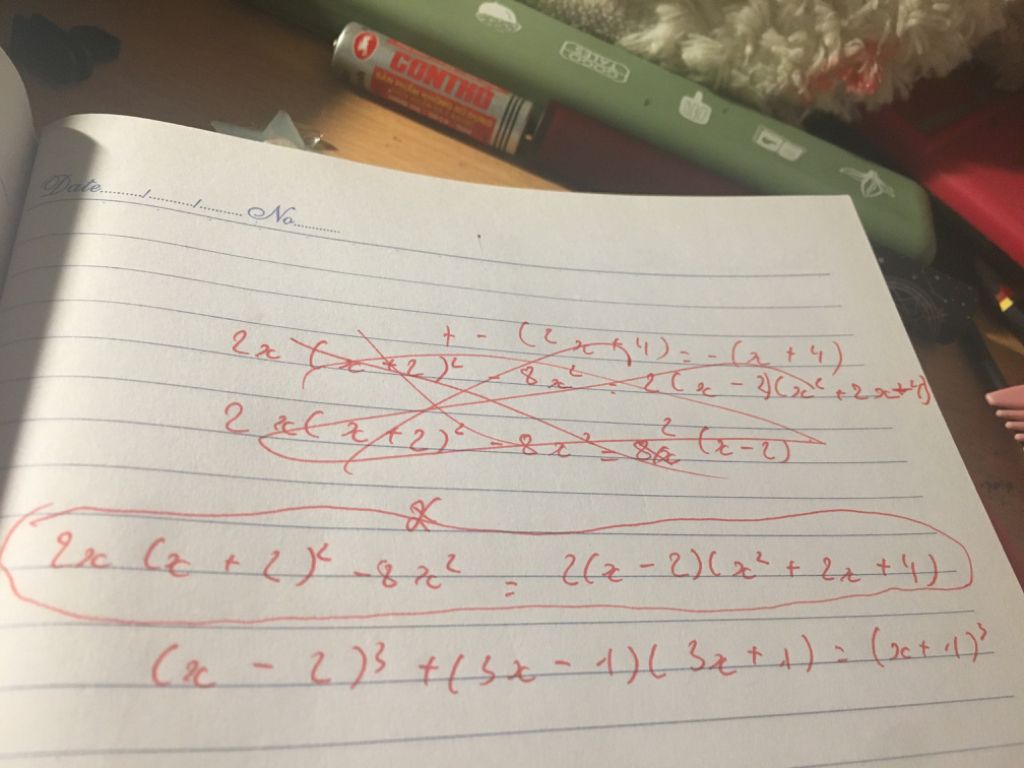 CON THỎ
Date....../....../...... No..........
2x + - (2x + 4) = -(x + 4)
(x + 2)² - 8x² = 2(x - 2)(x² + 2x + 4)
2x(x + 2)² - 8x² = 8x² (x - 2)
2x (x + 2)² - 8x² = 2(x - 2)(x² + 2x + 4)
(x - 2)³ + (3x - 1)(3x + 1) = (x + 1)³